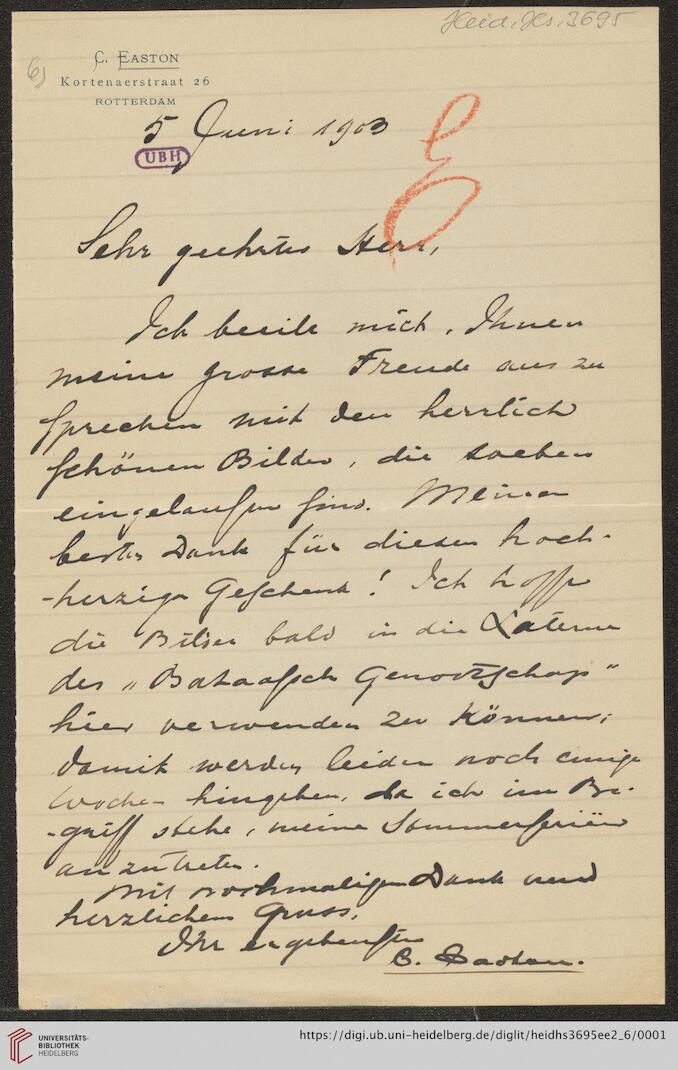 Heid. Hs. 3695
6)
C. EASTON
Kortenaerstraat 26
ROTTERDAM
5 Juni 1903
UBH
E
Sehr geehrter Herr,
Ich beeile mich, Ihnen
meine grosse Freude aus zu
sprechen mit den herrlich
schönen Bilder, die soeben
eingelaufen sind. Meinen
besten Dank für dieses hoch-
-herzige Geschenk! Ich hoffe
die Bilder bald in die Laterne
des „Bataafsch Genootschap"
hier verwenden zu können;
damit werden leider noch einige
Wochen hingehen, da ich im Be-
-griff stehe, meine Sommerferiën
an zu treten.
Mit nochmaligen Dank und
herzlichem Gruss,
Ihr ergebenster
C. Easton.
UNIVERSITÄTS-
BIBLIOTHEK
HEIDELBERG
https://digi.ub.uni-heidelberg.de/diglit/heidhs3695ee2_6/0001